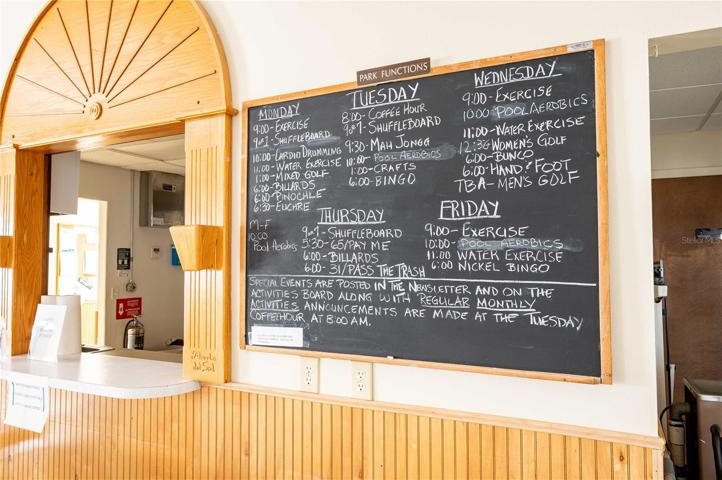 PARK FUNCTIONS
MONDAY
9:00-EXERCISE
9 or 1-SHUFFLEBOARD
10:00-CARDIO DRUMMING
11:00-WATER EXERCISE
11:00-MIXED GOLF
6:00-BILLARDS
6:00-PINOCHLE
6:30-EUCHRE
M-F
10:00
Pool Aerobics
TUESDAY
8:00-COFFEE HOUR
9 or 1-SHUFFLEBOARD
9:30-MAH JONGG
10:00-POOL AEROBICS
1:00-CRAFTS
6:00-BINGO
WEDNESDAY
9:00-EXERCISE
10:00-POOL AEROBICS
11:00-WATER EXERCISE
12:30 WOMEN'S GOLF
6:00-BUNCO
6:00-HAND & FOOT
TBA-MEN'S GOLF
THURSDAY
9 or 1-SHUFFLEBOARD
5:30-65/PAY ME
6:00-BILLARDS
6:00-31/PASS THE TRASH
FRIDAY
9:00-EXERCISE
10:00-POOL AEROBICS
11:00 WATER EXERCISE
6:00 NICKEL BINGO
SPECIAL EVENTS ARE POSTED IN THE NEWSLETTER AND ON THE
ACTIVITIES BOARD ALONG WITH REGULAR MONTHLY
ACTIVITIES. ANNOUNCEMENTS ARE MADE AT THE TUESDAY
COFFEEHOUR AT 8:00 AM.
del Sol